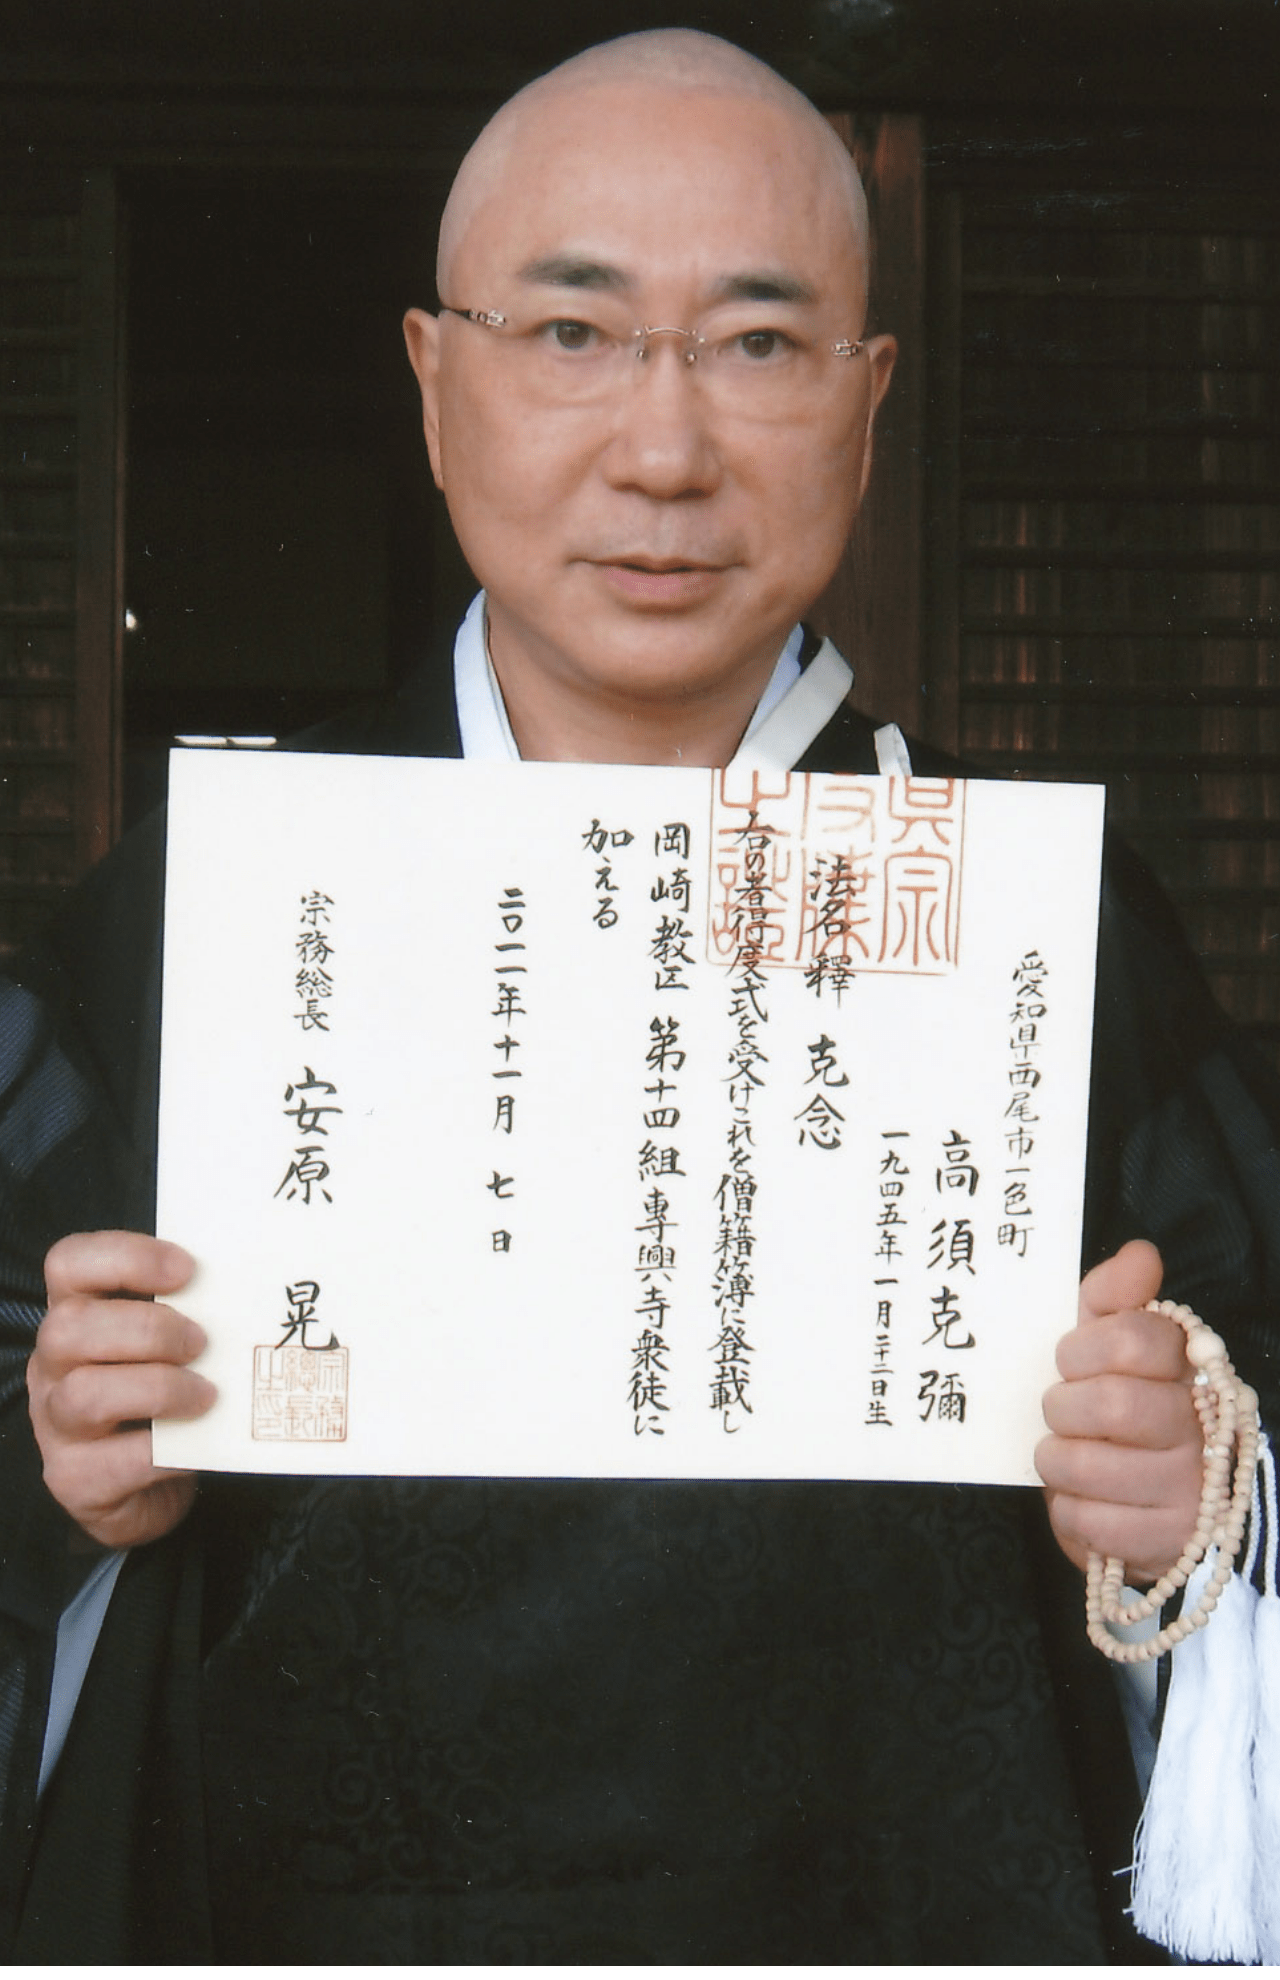 愛知県西尾市一色町
高須克彌
一九四五年一月二十二日生
法名 釋 克念
右の者得度式を受けこれを僧籍簿に登載し
岡崎教区 第十四組専興寺衆徒に
加える
二〇一一年十一月 七 日
宗務総長 安原 晃